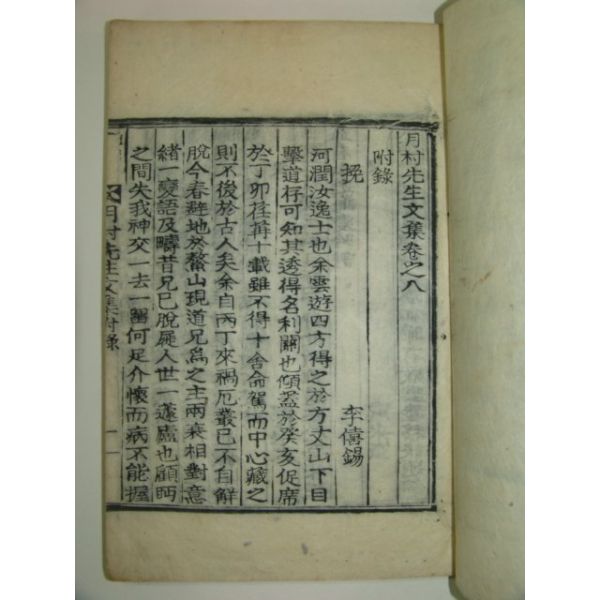 月村先生文集卷之八
附錄
挽
李僖錫
河潤汝逸士也余雲遊四方得之於方丈山下目
擊道存可知其透得名利關也傾盖於癸亥促席
於丁卯荏苒十載雖不得十舍命駕而中心藏之
則不後於古人矣余自丙丁來禍厄叢己不自解
脫今春避地於鰲山現道兄爲之主兩衰相對意
緖一變語及疇昔兄已脫屣人世一蘧廬也顧眄
之間失我神交一去一留何足介懷而病不能握
月村先生文集附錄